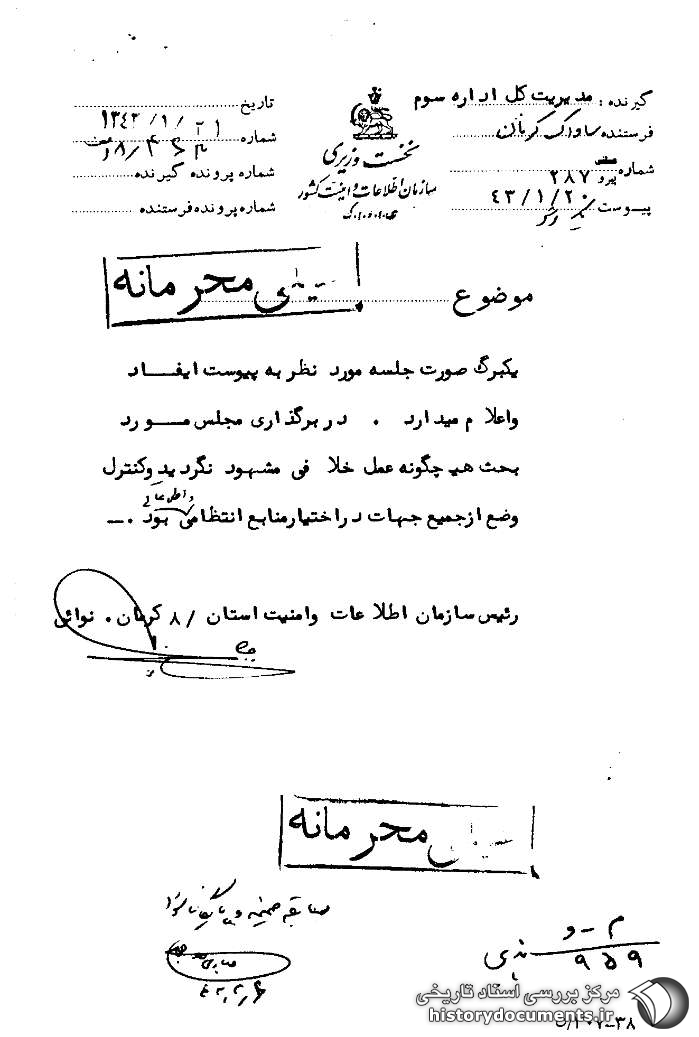 گیرنده : مدیریت کل اداره سوم
فرستنده ساواک کرمان
شماره پیرو ۲۸۷
۴۳/۱/۲۰
پیوست یک برگ
نخست وزیری
سازمان اطلاعات و امنیت کشور
س.ا.و.ا.ک
تاریخ ۱۳۴۳/۱/۲۱
شماره
شماره پرونده گیرنده
شماره پرونده فرستنده
موضوع
خیلی محرمانه
یکبرگ صورت جلسه مورد نظر به پیوست ایفاد
واعلام میدارد . در برگذاری مجلس مورد
بحث هیچگونه عمل خلافی مشهود نگردید وکنترل
وضع ازجمیع جهات در اختیار منابع انتظامی و اطلاعاتی بود .ــ
رئیس سازمان اطلاعات وامنیت استان /۸ کرمان . نوائی
خیلی محرمانه
م – و
۹۵۹
مرکز بررسی اسناد تاریخی
historydocuments.ir